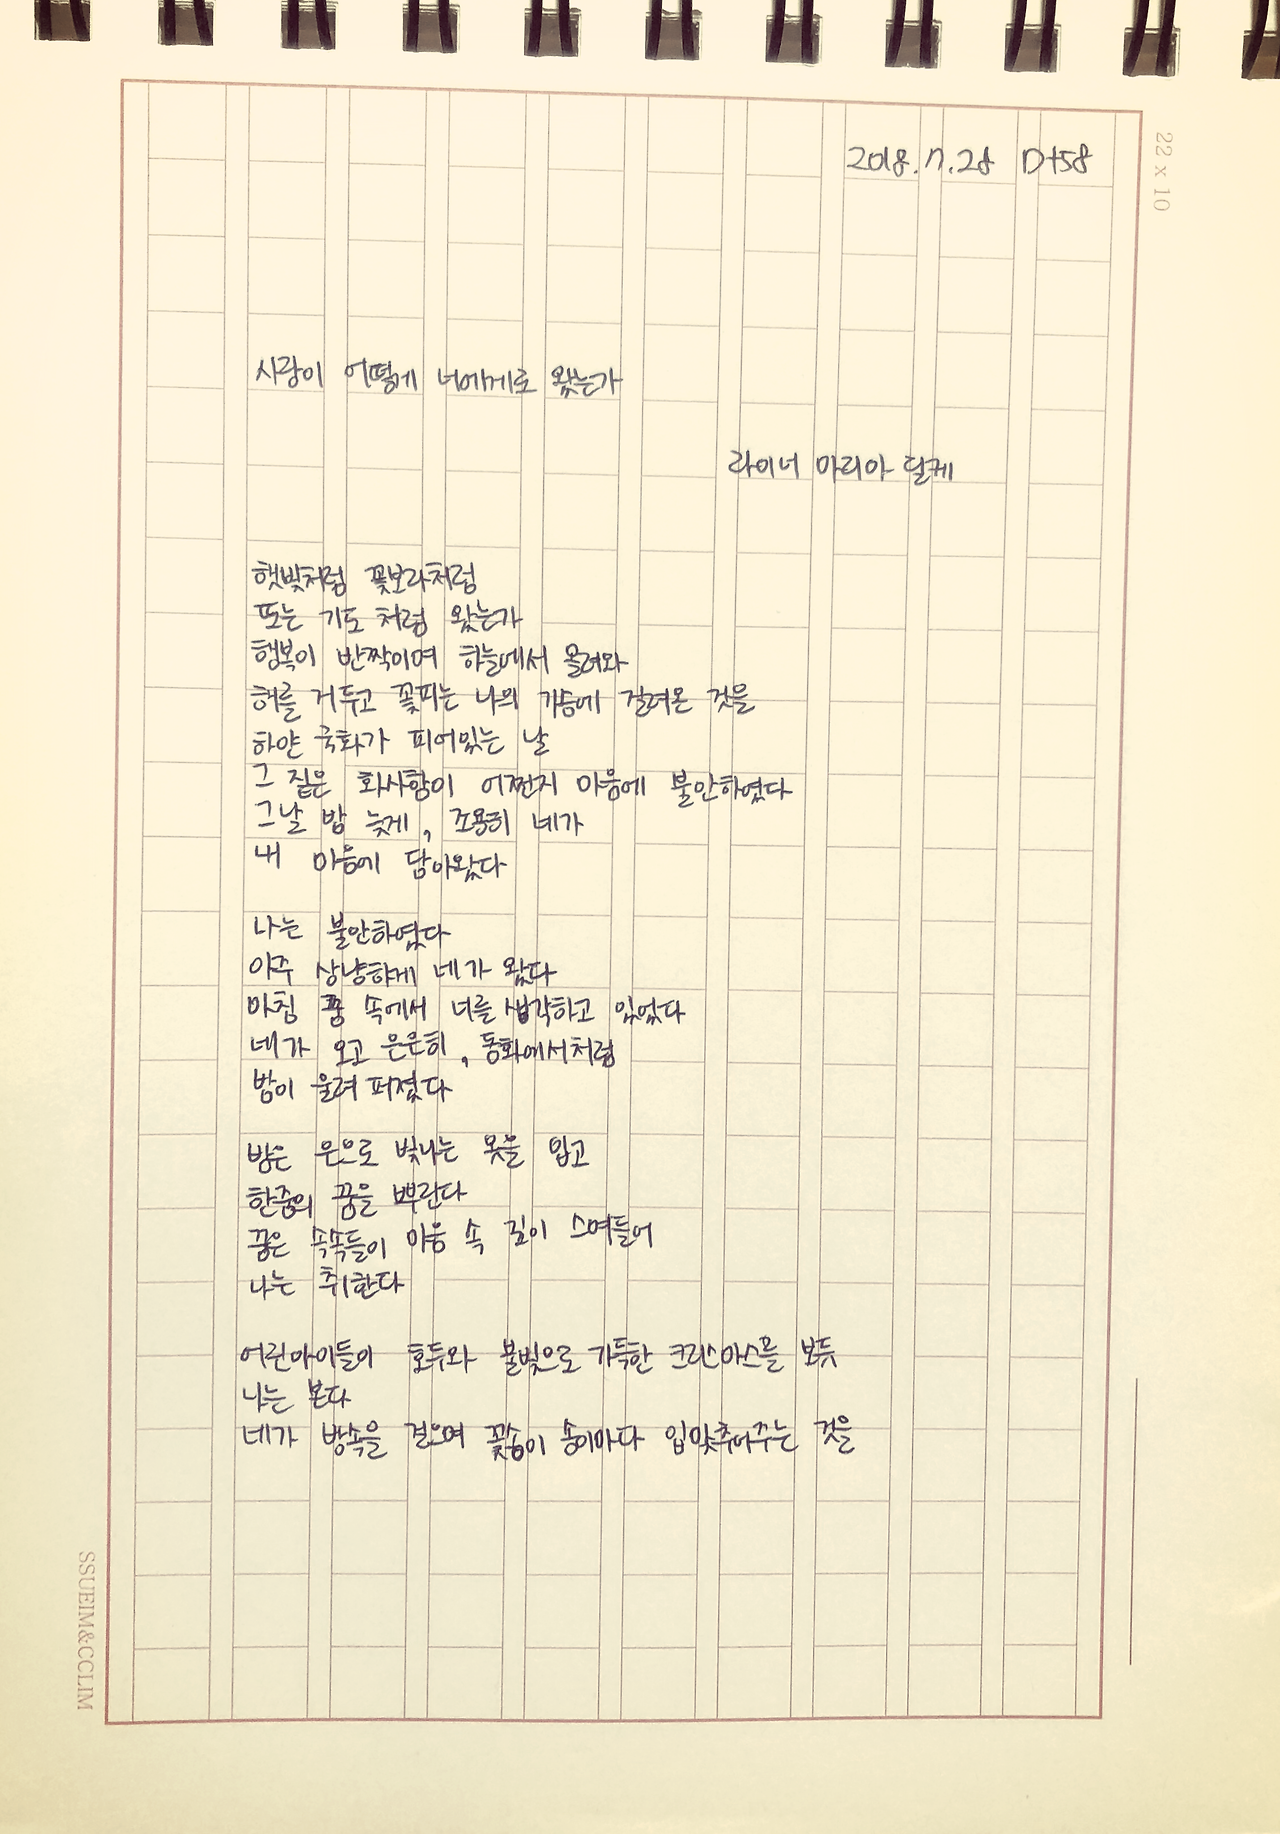 2018.7.28 D+58
22 x 10
사랑이 어떻게 너에게로 왔는가
라이너 마리아 릴케
햇빛처럼 꽃보라처럼
또는 기도처럼 왔는가
행복이 반짝이며 하늘에서 몰려와
허를 거두고 꽃피는 나의 가슴에 걸려온 것을
하얀 국화가 피어있는 날
그 짙은 화사함이 어쩐지 마음에 불안하였다
그날 밤 늦게, 조용히 네가
내 마음에 담아왔다
나는 불안하였다
아주 상냥하게 네가 왔다
마침 꿈 속에서 너를 생각하고 있었다
네가 오고 은은히, 동화에서처럼
밤이 울려 퍼졌다
밤은 은으로 빛나는 옷을 입고
한줌의 꿈을 뿌린다
꿈은 속속들이 마음 속 깊이 스며들어
나는 취한다
어린아이들이 호두와 불빛으로 가득한 크리스마스를 보듯
나는 본다
네가 밤속을 걸으며 꽃송이 송이마다 입맞추어주는 것을
SSUEIM&CCLIM